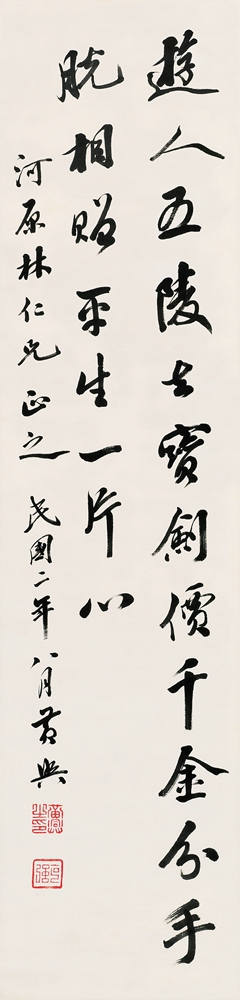 遊人五陵去寶劍價千金分手
脫相贈平生一片心
河原林仁兄正之 民國二年八月黃興
黃興之印